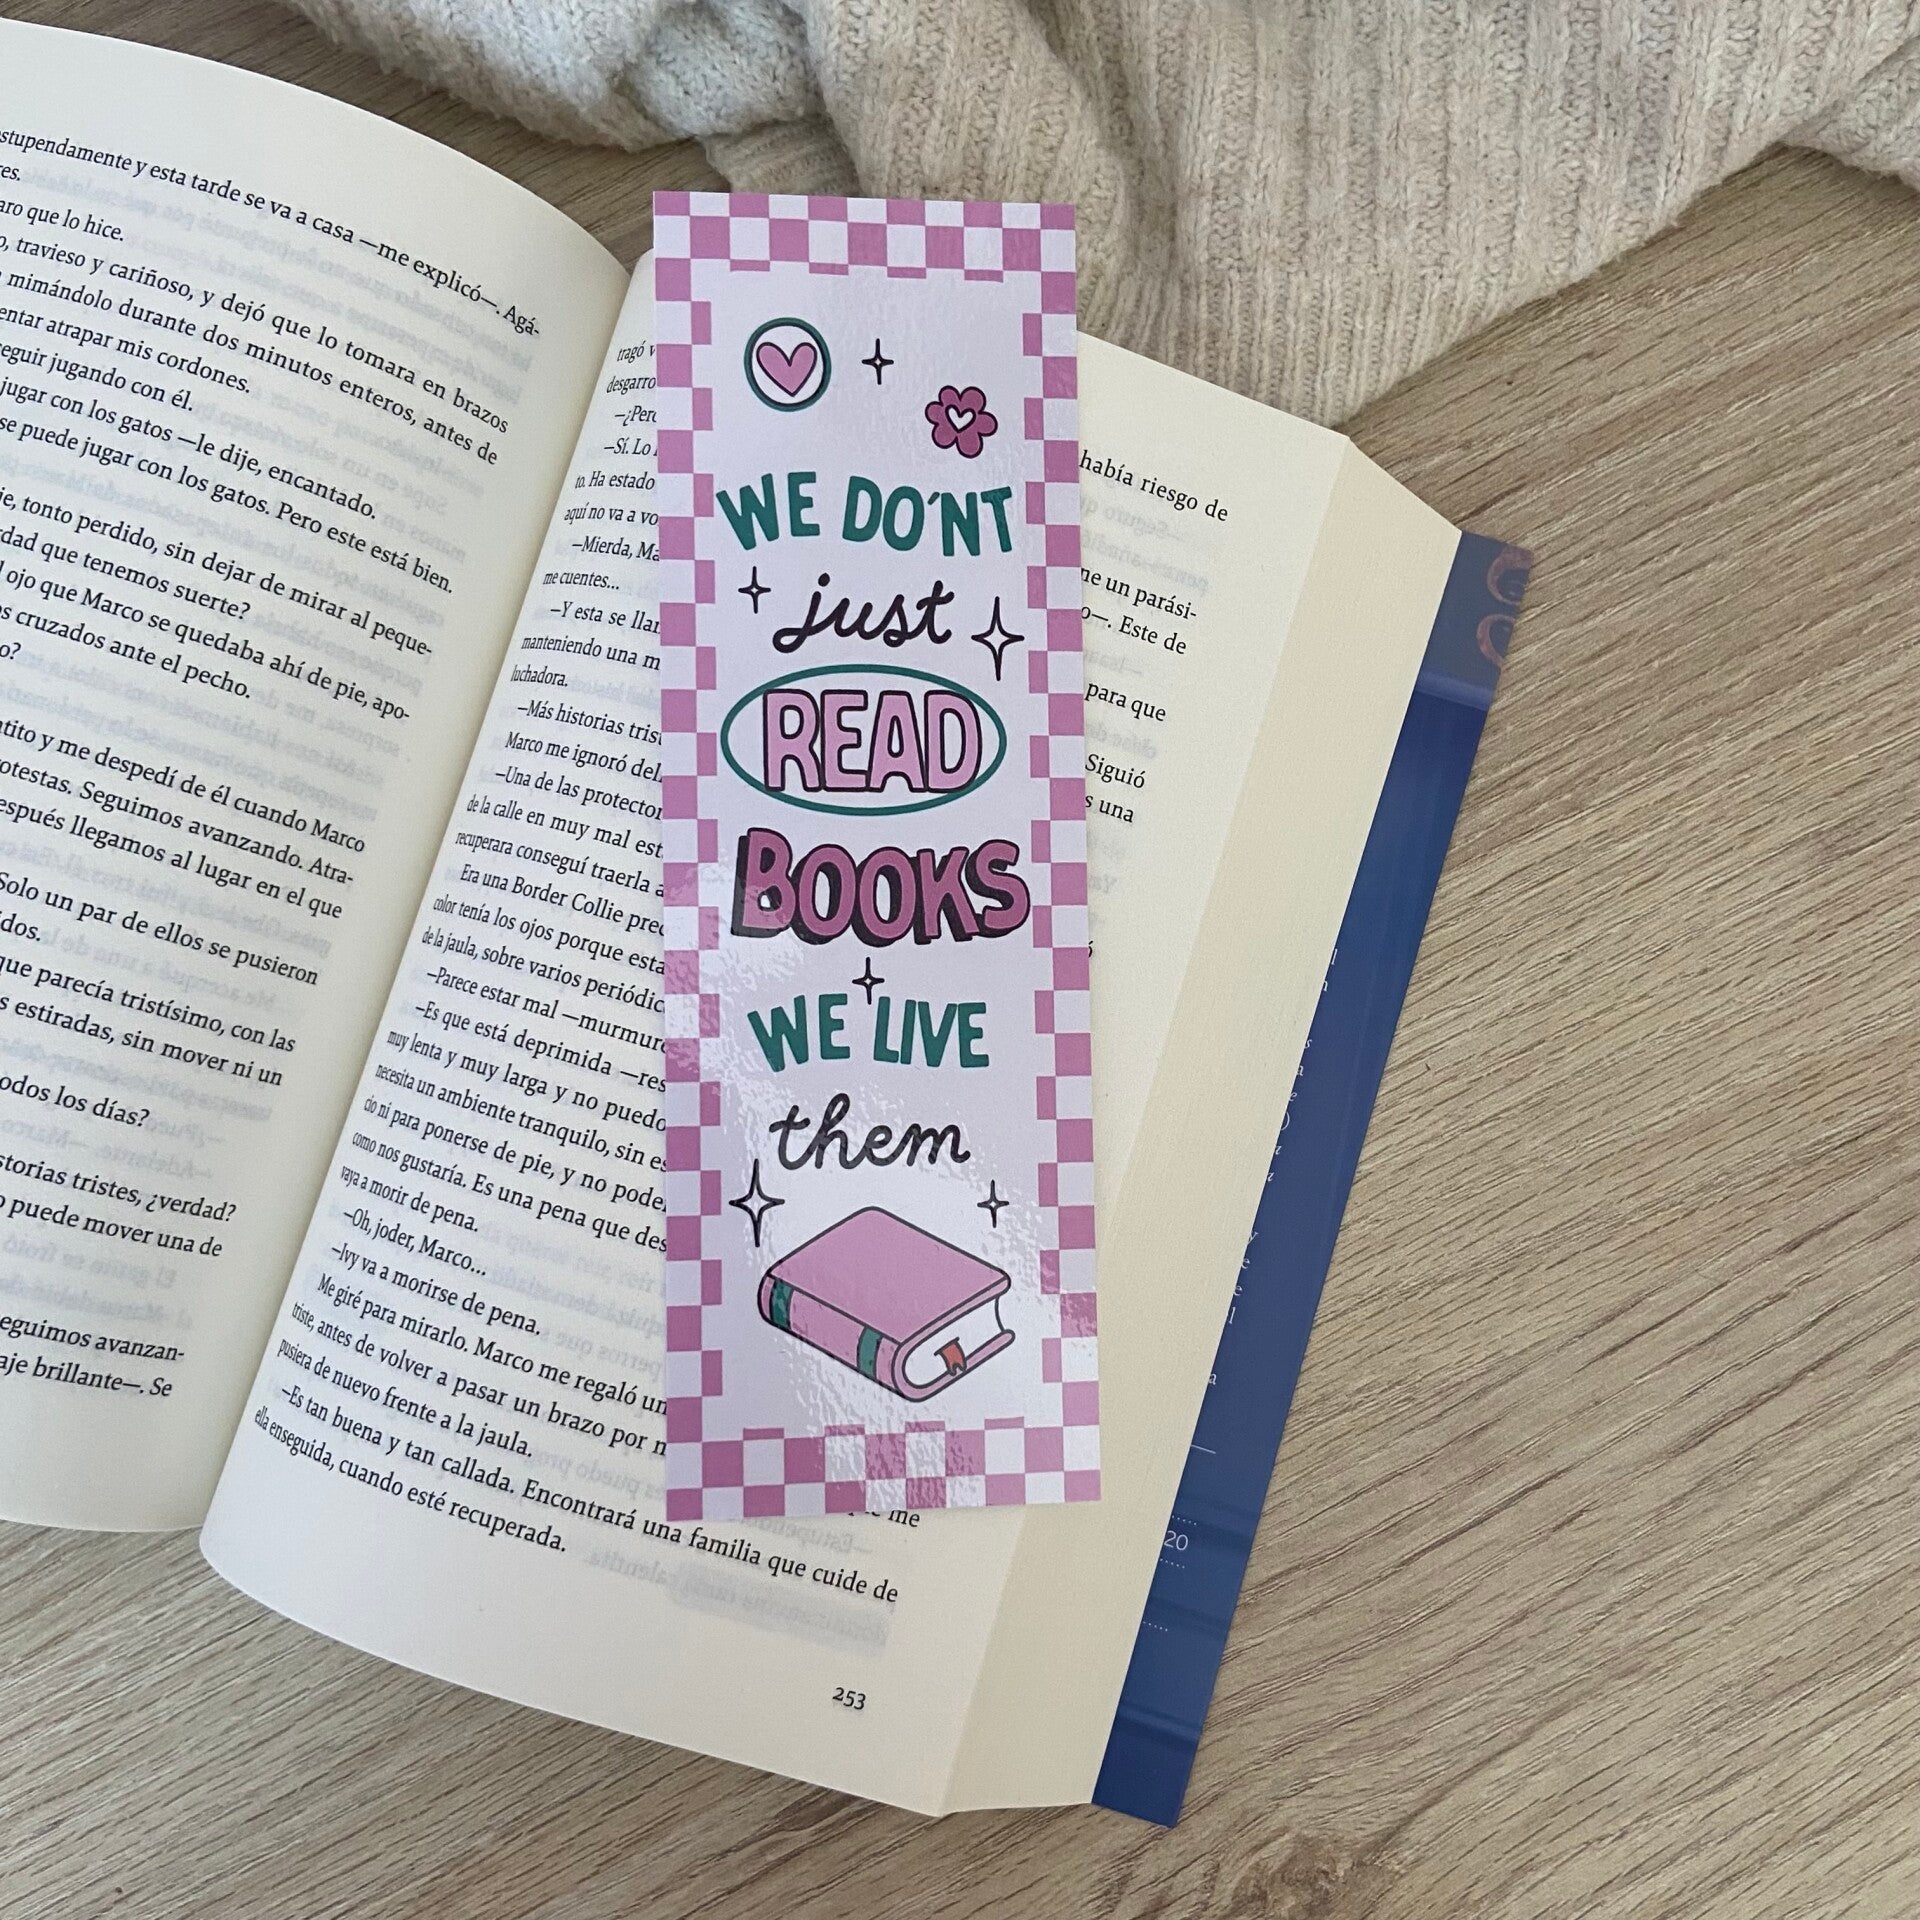 estupendamente y esta tarde se va a casa —me explicó—. Agá-
que lo hice.
travieso y cariñoso, y dejó que lo tomara en brazos
mimándolo durante dos minutos enteros, antes de
atrapar mis cordones.
jugando con él.
jugar con los gatos —le dije, encantado.
se puede jugar con los gatos. Pero este está bien.
tonto perdido, sin dejar de mirar al peque-
que tenemos suerte?
ojo que Marco se quedaba ahí de pie, apo-
cruzados ante el pecho.
y me despedí de él cuando Marco
Seguimos avanzando. Atra-
después llegamos al lugar en el que
Solo un par de ellos se pusieron
que parecía tristísimo, con las
estiradas, sin mover ni un
los días?
tristes, ¿verdad?
puede mover una de
seguimos avanzan-
brillante—. Se
tragó
—Sí. Lo
to. Ha estado
aquí no va a
—Mierda,
me cuentes...
—Y esta se
manteniendo una
luchadora.
—Más historias
Marco me ignoró
—Una de las
de la calle en muy mal
recuperara conseguí traerla
Era una Border Collie
color tenía los ojos porque
de la jaula, sobre varios
—Parece estar mal
—Es que está deprimida
muy lenta y muy larga y no puedo
necesita un ambiente tranquilo, sin
cio ni para ponerse de pie, y no
como nos gustaría. Es una pena que
vaya a morir de pena.
—Oh, joder, Marco...
—Ivy va a morirse de pena.
Me giré para mirarlo. Marco me regaló
triste, antes de volver a pasar un brazo por
pusiera de nuevo frente a la jaula.
—Es tan buena y tan callada. Encontrará una familia que cuide de
ella enseguida, cuando esté recuperada.
había riesgo de
un parási-
Este de
para que
Siguió
una
me
253
WE DO'NT
just
READ
BOOKS
WE LIVE
them
20